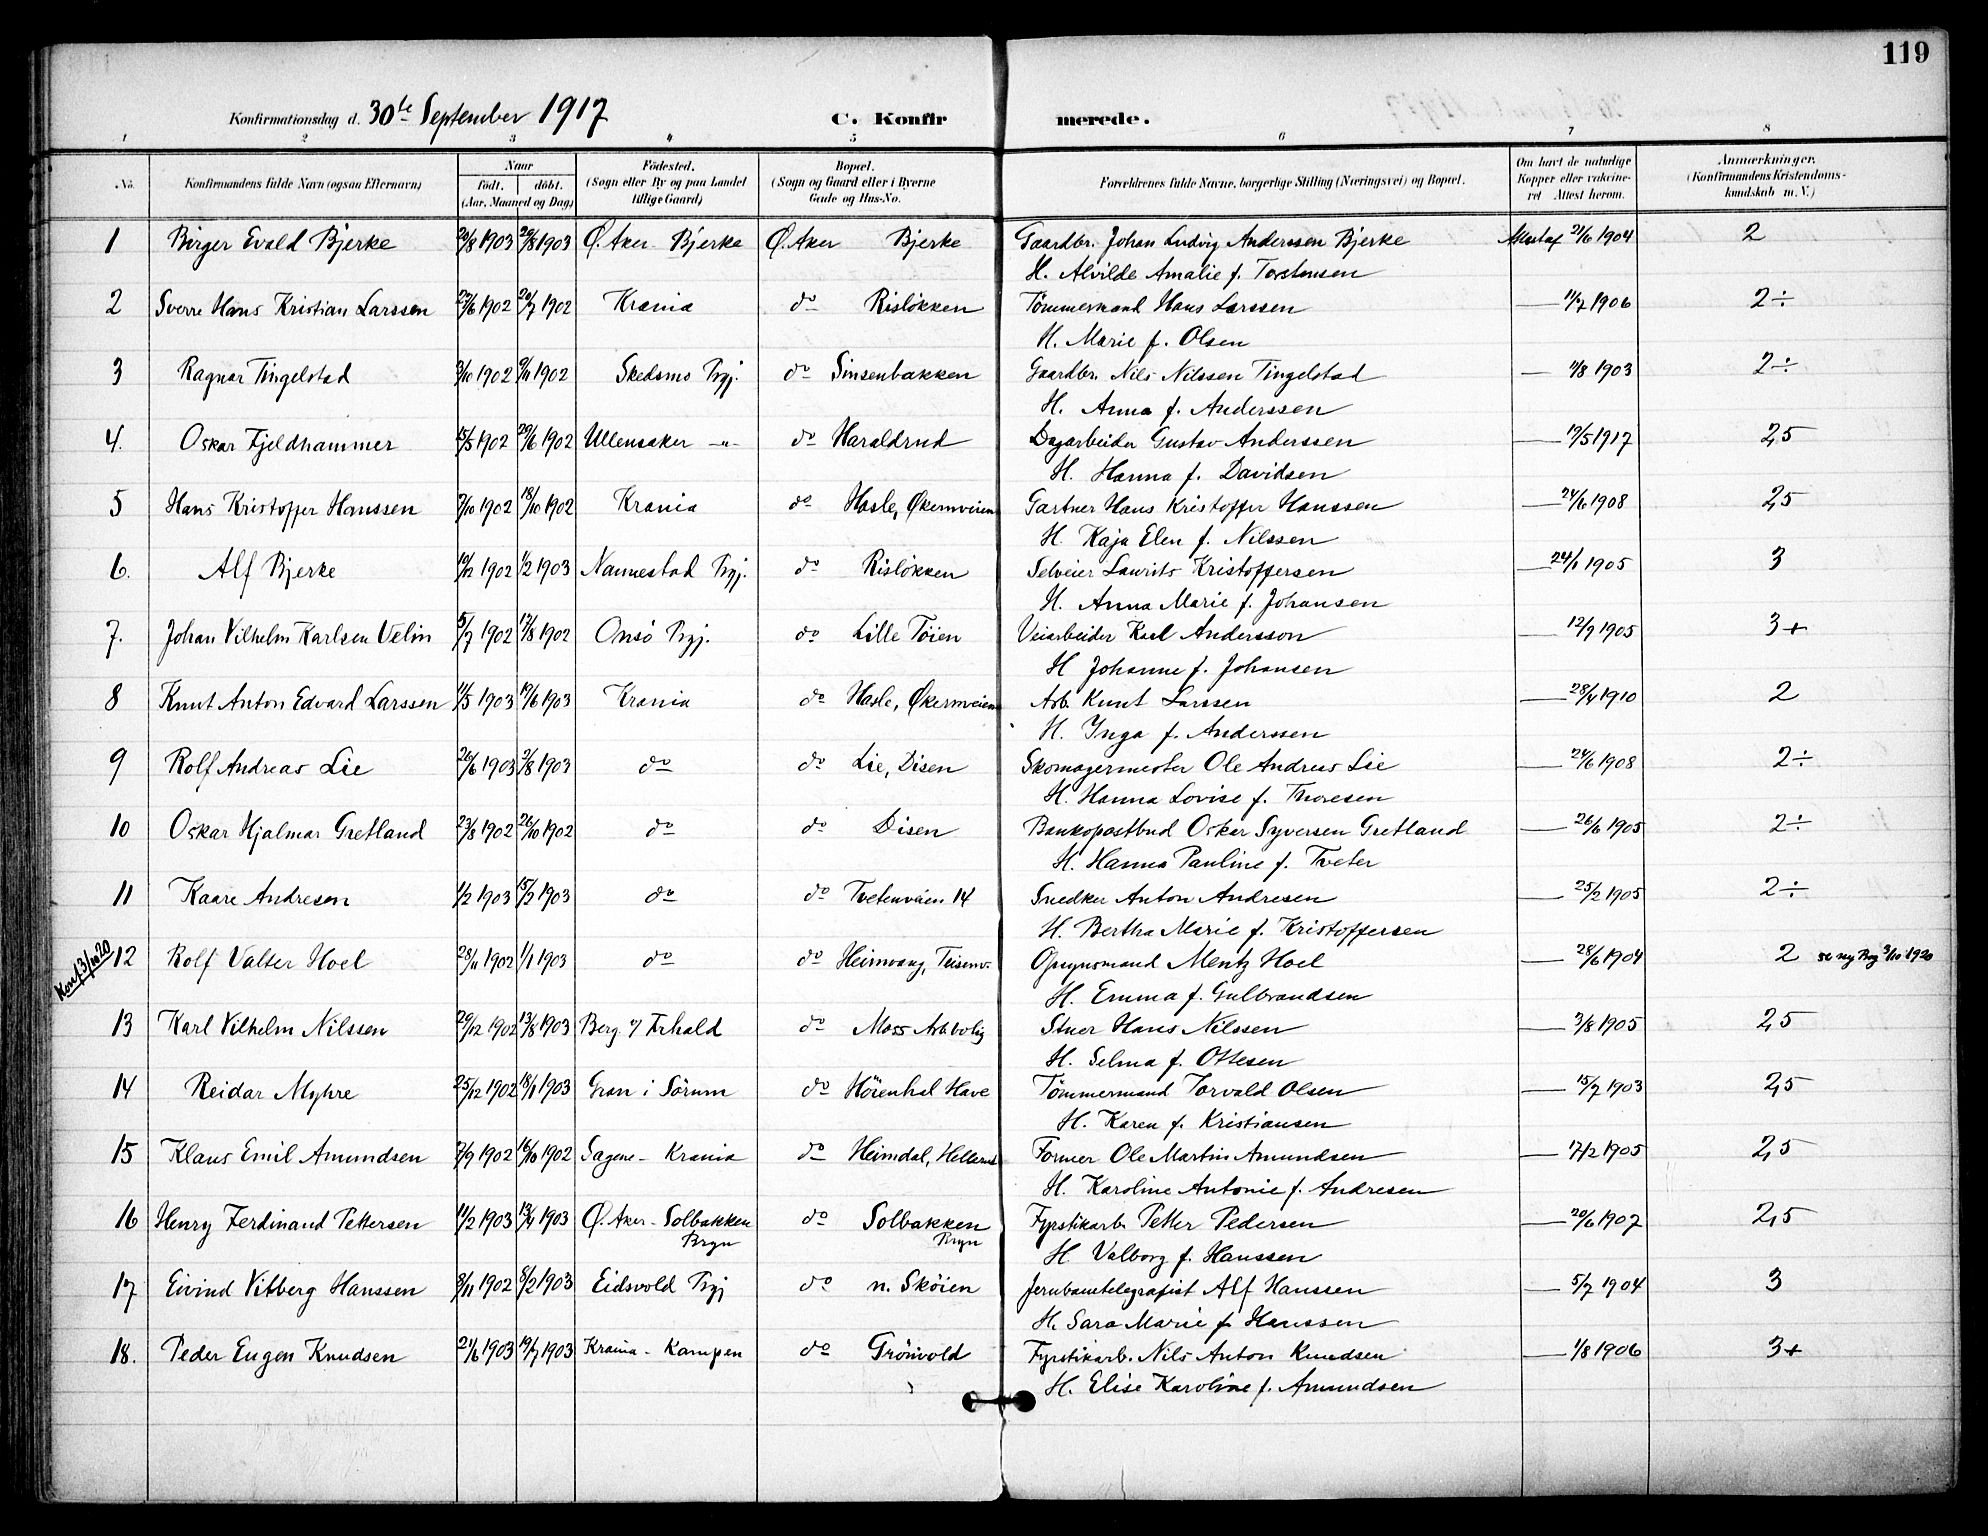 119
Konfirmationsdag d. 30te September 1917 C. Konfirmerede.
1 2 3 4 5 6 7 8
No. Konfirmandens fulde Navn (ogsaa Efternavn) Naar födt. döbt. (Aar, Maaned og Dag) Födested. (Sogn eller By og paa Landet tillige Gaard) Bopæl. (Sogn og Gaard eller i Byerne Gade og Hus-No. Forældrenes fulde Navne, borgerlige Stilling (Næringsvei) og Bopæl. Om havt de naturlige Kopper eller vakcineret Attest herom. Anmærkninger. (Konfirmandens Kristendomskundskab m. V.)
1 Birger Evald Bjerke 20/8 1903 29/8 1903 Ø. Aker Bjerke Ø. Aker Bjerke Gaardbr. Johan Ludvig Anderssen Bjerke 21/6 1904 2
H. Alvilde Amalie f. Torstensen
2 Sverre Hans Kristian Larssen 29/6 1902 20/7 1902 Krania do Risløkken Tømmermand Hans Larssen — 11/7 1906 2÷
H. Marie f. Olsen
3 Ragnar Tingelstad 3/10 1902 9/11 1902 Skedsmo Prgj. do Sinsenbakken Gaardbr. Nils Nilssen Tingelstad — 11/8 1903 2÷
H. Anna f. Anderssen
4. Oskar Fjeldhammer 15/5 1902 29/6 1902 Ullensaker -"- do Haraldrud Dagarbeider Gustav Anderssen — 19/5 1917 2,5
H. Hanna f. Davidsen
5 Hans Kristoffer Hanssen 7/10 1902 18/10 1902 Krania do Hasle, Økernveien Gartner Hans Kristoffer Hanssen — 24/6 1908 2,5
H. Kaja Elen f. Nilssen
6. Alf Bjerke 10/12 1902 1/2 1903 Nannestad Prgj. do Risløkken Selveier Laurits Kristoffersen — 24/1 1905 3
H. Anna Marie f. Johansen
7. Johan Vilhelm Karlsen Velin 5/7 1902 17/8 1902 Onsö Prgj. do Lille Töien Veiarbeider Karl Andersson — 12/9 1905 3+
H Johanne f. Johansen
8 Knut Anton Edvard Larssen 11/5 1903 19/6 1903 Krania do Hasle, Økernveien Arb. Knut Larssen — 28/4 1910 2
H. Inga f. Anderssen
9 Rolf Andreas Lie 26/6 1903 2/8 1903 do do Lie, Disen Skomagermester Ole Andreas Lie — 24/6 1908 2÷
H. Hanna Lovise f. Thoresen
10 Oskar Hjalmar Gretland 23/8 1902 26/10 1902 do do Disen Bankopostbud Oskar Syversen Gretland — 26/6 1905 2÷
H. Hanna Pauline f. Tveter
11 Kaare Andresen 1/2 1903 15/2 1903 do do Tvetenveien 14 Snedker Anton Andresen — 25/2 1905 2÷
H. Bertha Marie f. Kristoffersen
Konf 3/10 20 12 Rolf Valter Hoel 28/11 1902 1/1 1903 do do Heimvang, Teisenv. Opsynsmand Mentz Hoel — 28/6 1904 2 se ny Bog 3/10 1920
H. Emma f. Gulbrandsen
13 Karl Vilhelm Nilssen 29/12 1902 13/8 1903 Berg v/ Frhald do Moss Arb.bolig Stuer Hans Nilssen — 3/8 1905 2,5
H. Selma f. Ottesen
14 Reidar Myhre 25/12 1902 18/1 1903 Gran i Sörum do Höienhal Have Tömmermand Torvald Olsen — 15/7 1903 2,5
H. Karen f. Kristiansen
15 Klaus Emil Amundsen 7/9 1902 16/10 1902 Sagene - Krania do Heimdal, Former Ole Martin Amundsen — 17/2 1905 2,5
H. Karoline Antonie f. Andresen
16 Henry Ferdinand Pettersen 11/2 1903 13/4 1903 Ø. Aker - Solbakken do Solbakken Fyrstikarb. Petter Pedersen — 20/6 1907 2,5
Bryn Bryn H. Valborg f. Hanssen
17 Eivind Vitberg Hanssen 3/11 1902 8/2 1903 Eidsvold Prgj do n. Sköien Jernbanetelegrafist Alf Hanssen — 5/7 1904 3
H. Sara Marie f. Hanssen
18. Peder Eugen Knudsen 24/6 1903 19/7 1903 Krania - Kampen do Grönvold Fyrstikarb. Nils Anton Knudsen — 1/8 1906 3+
H. Elise Karoline f. Amundsen